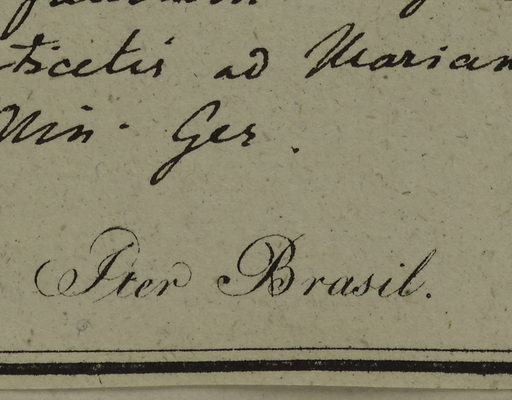 ad Marian
Min. Ger.
Iter Brasil.